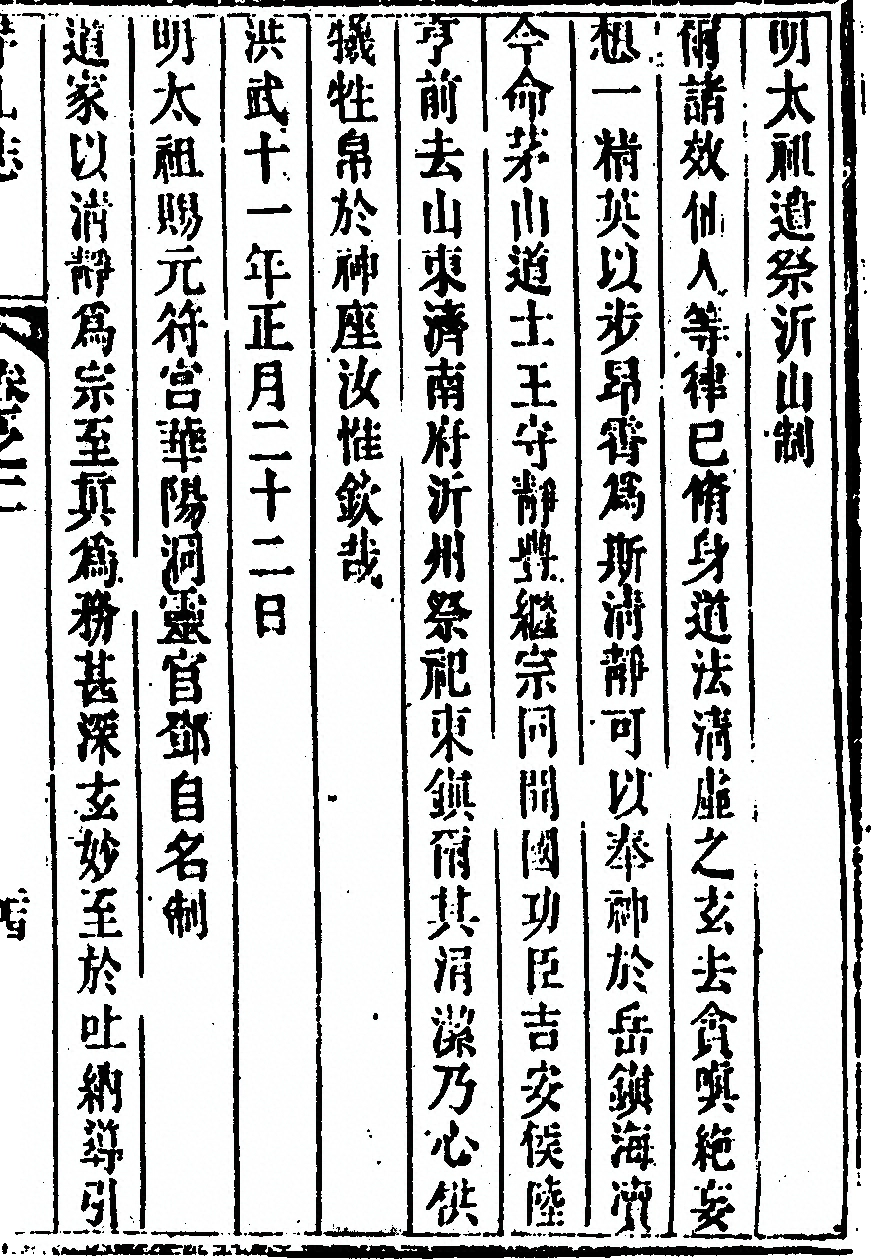 明太祖遣祭沂山制
爾諸效仙人等律已脩身道法清虛之玄去貪嗔絶妄
想一精英以步昂霄爲斯清靜可以奉神於岳鎮海瀆
今命茅山道士王守靜興繼宗同開國功臣吉安侯陸
亨前去山東濟南府沂州祭祀東鎮爾其涓潔乃心供
犧牲帛於神座汝惟欽哉
洪武十一年正月二十二日
明太祖賜元符宮華陽洞靈官鄧自名制
道家以清靜爲宗至眞爲務甚深玄妙至於吐納導引
茅山志
卷之二